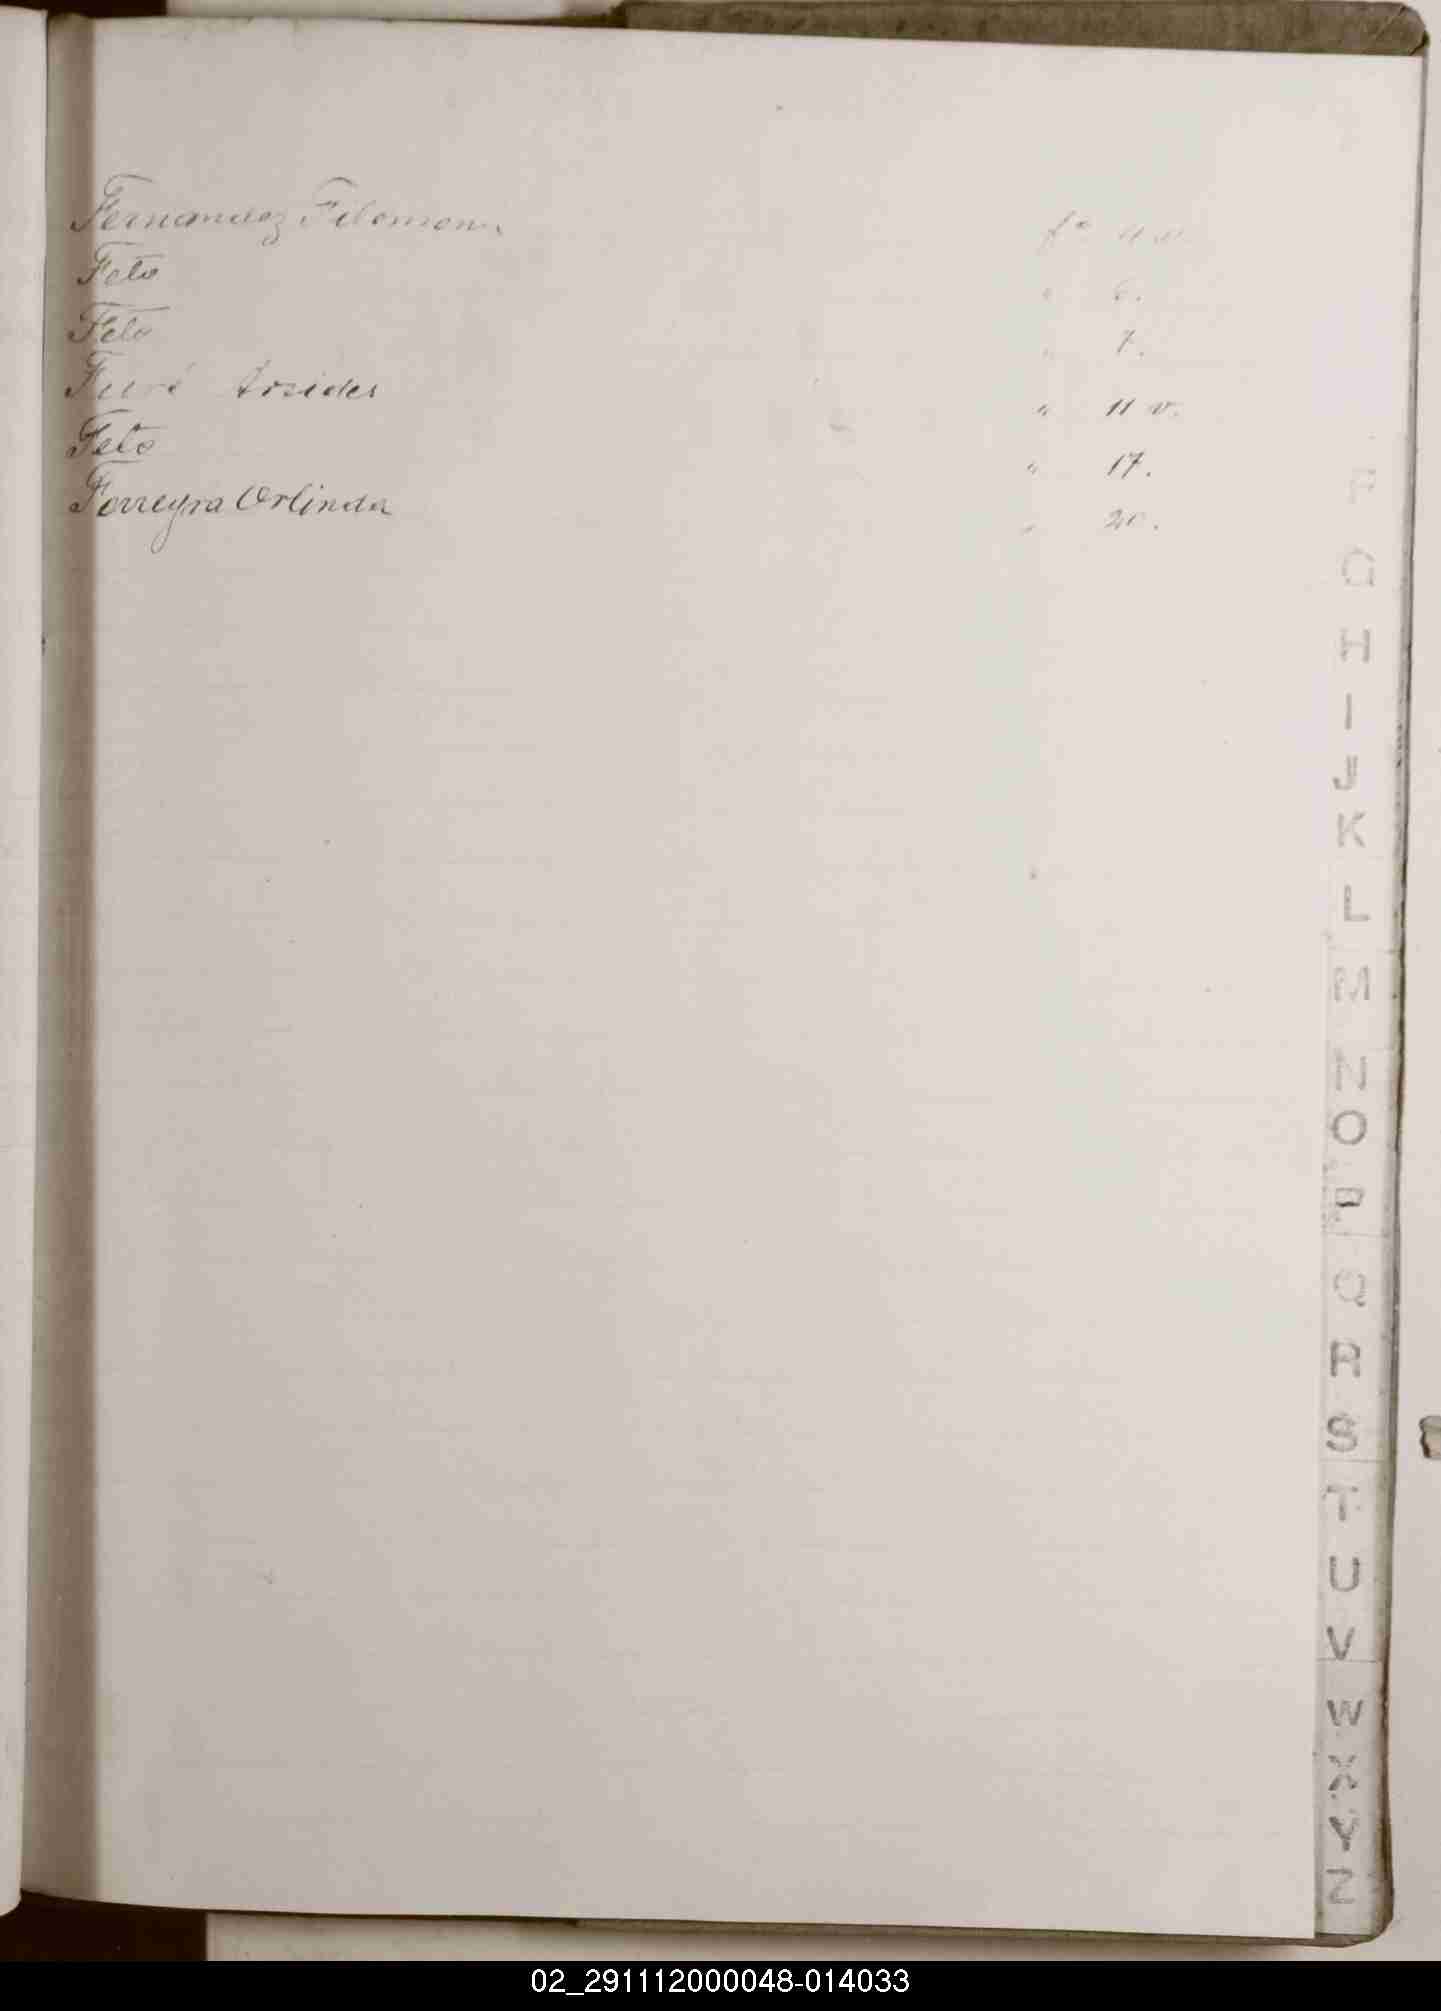 Fernandez Filomena fº 4 v.
Feto " 6.
Feto " 7.
Arsides " 11 v.
Feto " 17.
Ferreyra Orlinda " 20.
F
G
H
I
J
K
L
M
N
O
P
Q
R
S
T
U
V
W
X
Y
Z
02_291112000048-014033